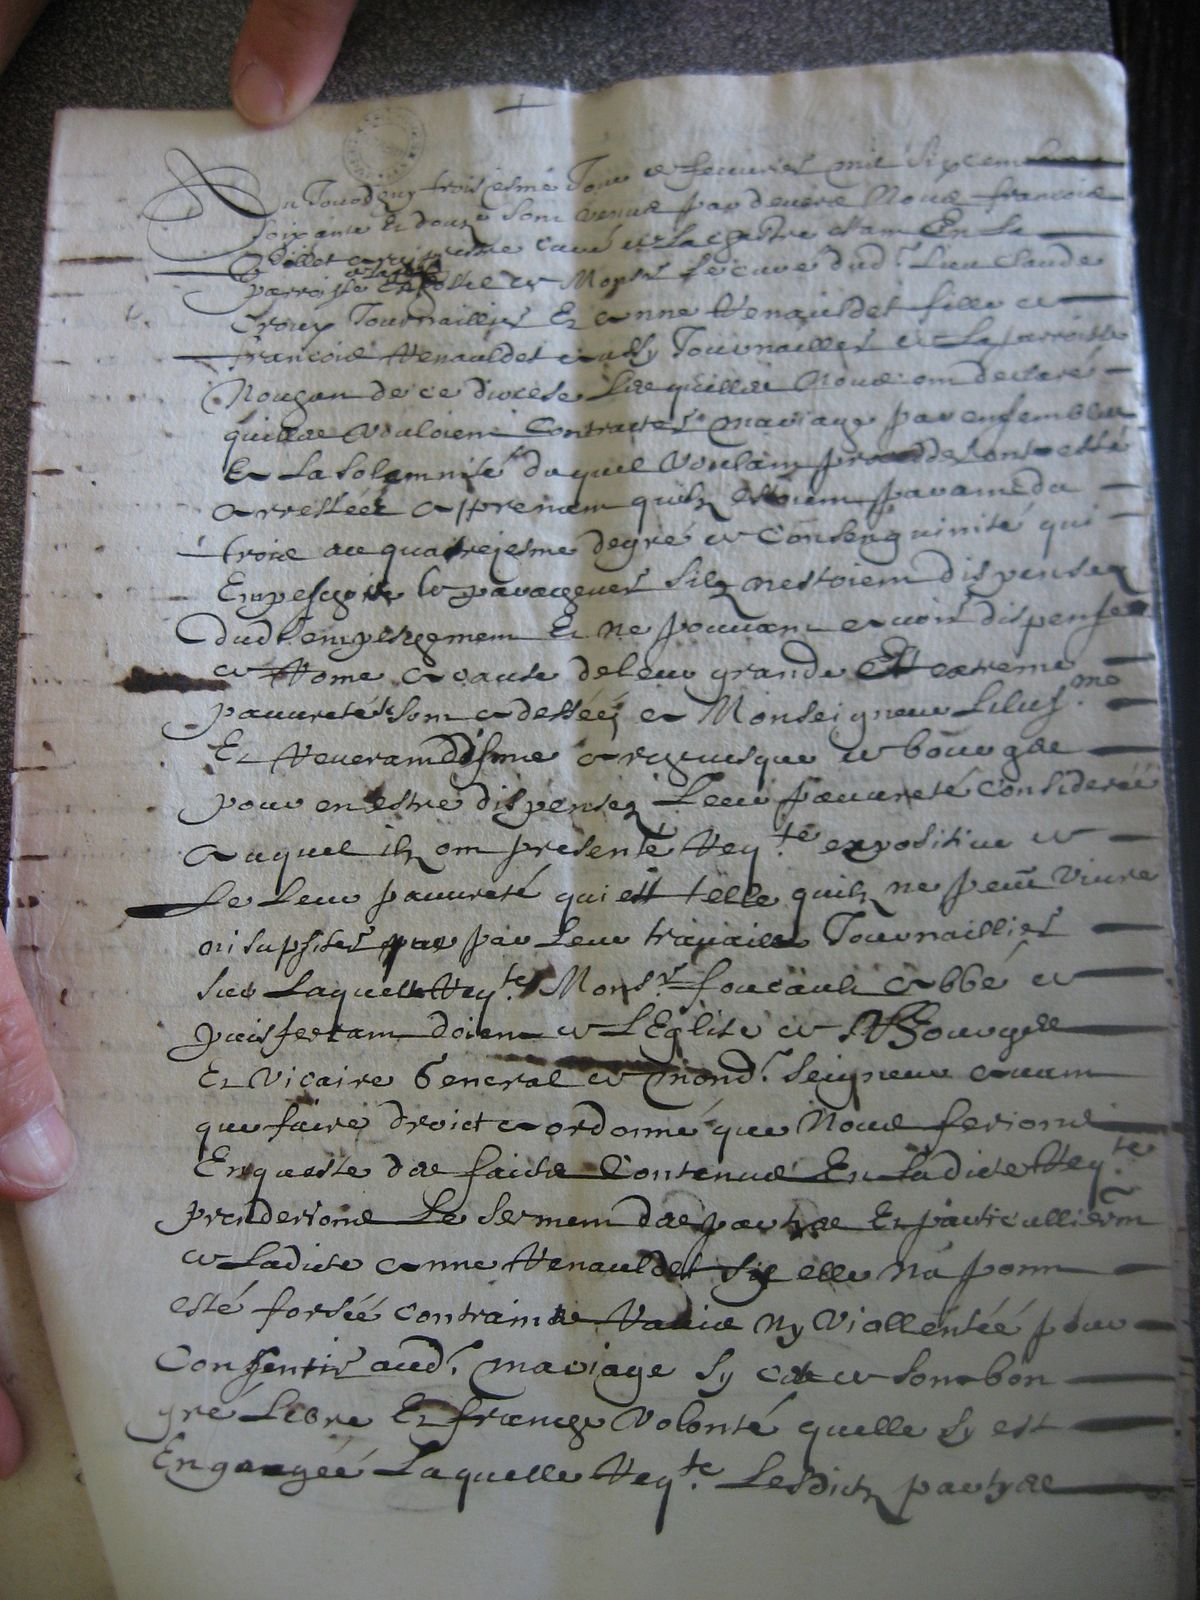 Au Jourdhuy troisiesme Jour de feuurier mil six cem
soixante Et douze Sont venus par deuers Nous francois
curé de La chastre estam En La
parroisse En hostel de Monsr Le curé dud.t Lieu claude
croux Journaillier Et anne Renauldet fille de
francois Renauldet aussy Journaillier de La parroisse
Nougan de ce diocese Lesquelles Nous om declaré
quilles vouloiem Contracter mariage par ensemble
Et La Solemnité duquel voulam proceder ont esté
arrestées apprenem quilz estoiem paramt du
trois au quatriejesme degré de Consenguinité qui
Empeschoit le paracheuer silz nestoiem dispensez
dud.t empeschemem Et ne pouuam auoir dispense
de Rome a cause de leur grande Et extreme
pauureté Som adessées a Monseigneur Lilus.me
Et Reueramdisme archeuesque de bourges
pour en estre dispensez Leur pauureté Considerée
auquel ilz om presenté Reqte expositiue de
de Leur pauureté qui est telle quilz ne peuu viure
ni supsiter que par Leur trauaille Journaillier
sur Laquelle Reqte Monsr foucault abbé de
puisferram doien de LEglise de Bourges
Et vicaire General de mond.t seigneur auam
que faire droict a ordonné que Nous ferions
Enqueste des faicts Contenus En Ladicte Reqte
prenderions Le sermem des partyes Et particulliermt
de Ladicte anne Renauldet sy elle Na poinn
esté forsée contrainte Rauie Ny Viollentée pour
Consentir aud.t mariage sy cest de son bon
gré Libre Et franche volonté quelle sy est
Engaugée Laquelle Reqte Lesdictz partyes